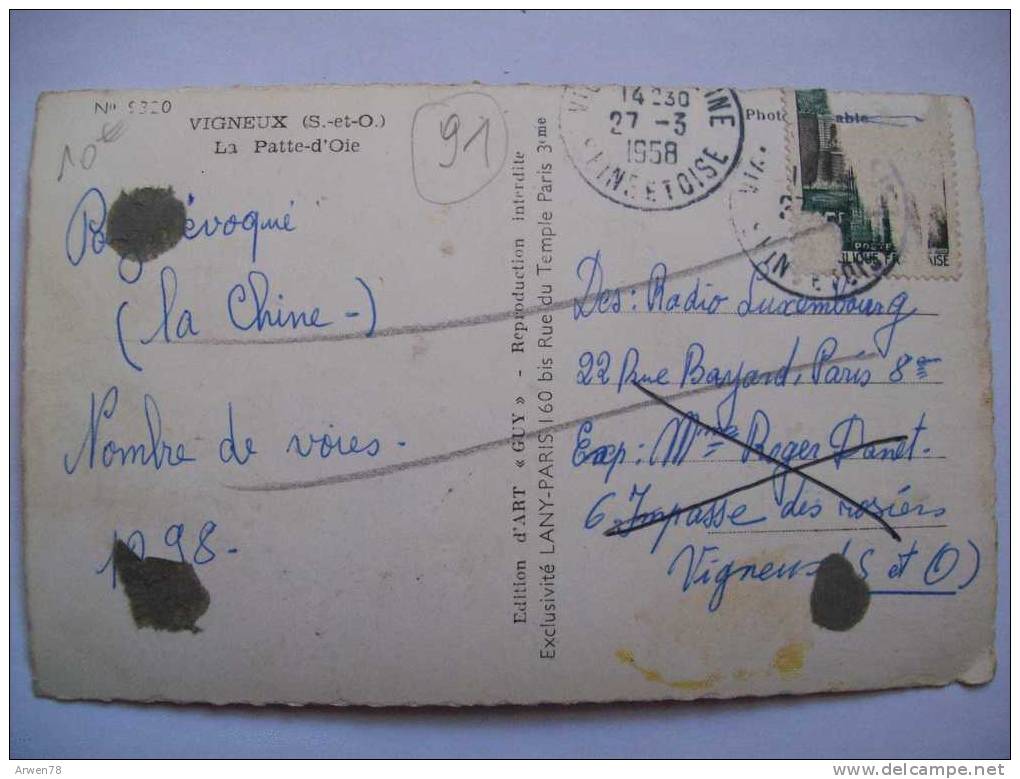 No 9320
VIGNEUX (S.-et-O.)
La Patte-d'Oie
10€
91
évoqué
(la Chine-)
Nombre de voies.
98-
Edition d'ART « GUY » - Reproduction interdite
Exclusivité LANY-PARIS 160 bis Rue du Temple Paris 3me
14 30
27 -3
1958
SEINE ET OISE
POSTES
Des: Radio Luxembourg
22 Rue Bayard, Paris 8
Exp: Mme Roger Danet.
6 Impasse des rosiers
Vigneux (S et O)
Arwen78
www.delcampe.net